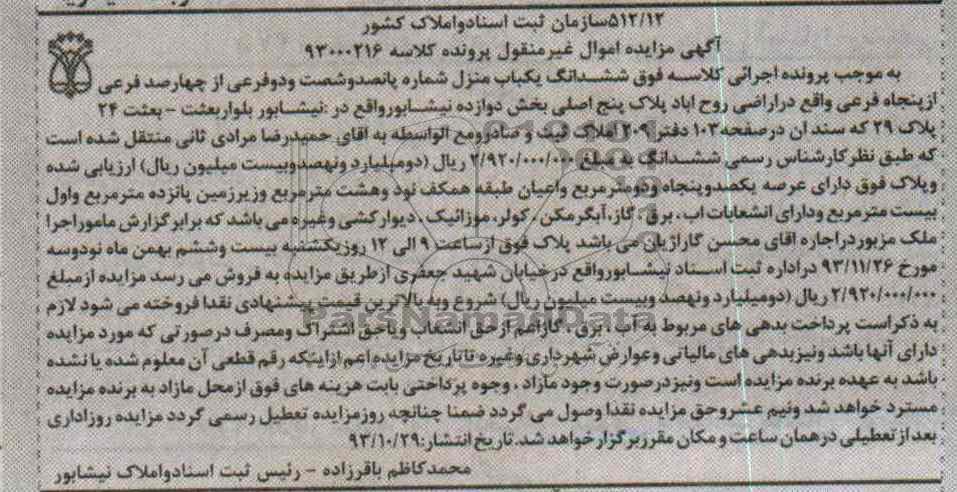 ۵۱۲/۱۲سازمان ثبت اسنادواملاک کشور
آگهی مزایده اموال غیرمنقول پرونده کلاسه ۹۳۰۰۰۲۱۶
به موجب پرونده اجرائی کلاسه فوق ششدانگ یکباب منزل شماره پانصدوشصت ودوفرعی از چهارصد فرعی
ازپنجاه فرعی واقع دراراضی روح اباد پلاک پنج اصلی بخش دوازده نیشابورواقع در :نیشابور بلواربعثت – بعثت ۲۴
پلاک ۲۹ که سند ان درصفحه۱۰۳ دفتر۲۰۹ املاک ثبت و صادرومع الواسطه به اقای حمیدرضا مرادی ثانی منتقل شده است
که طبق نظرکارشناس رسمی ششدانگ به مبلغ ۲/۹۲۰/۰۰۰/۰۰۰ ریال (دومیلیارد ونهصدوبیست میلیون ریال) ارزیابی شده
وپلاک فوق دارای عرصه یکصدوپنجاه ودومترمربع واعیان طبقه همکف نود وهشت مترمربع وزیرزمین پانزده مترمربع واول
بیست مترمربع ودارای انشعابات اب ، برق ، گاز،آبگرمکن ، کولر، موزائیک ، دیوارکشی وغیره می باشد که برابر گزارش ماموراجرا
ملک مزبوردراجاره اقای محسن گاراژیان می باشد پلاک فوق ازساعت ۹ الی ۱۲ روزیکشنبه بیست وششم بهمن ماه نودوسه
مورخ ۹۳/۱۱/۲۶ دراداره ثبت اسناد نیشابورواقع درخیابان شهید جعفری ازطریق مزایده به فروش می رسد مزایده ازمبلغ
۲/۹۲۰/۰۰۰/۰۰۰ ریال (دومیلیارد ونهصد وبیست میلیون ریال) شروع وبه بالاترین قیمت پیشنهادی نقدا فروخته می شود لازم
به ذکراست پرداخت بدهی های مربوط به آب ، برق ، گازاعم ازحق انشعاب ویاحق اشتراک ومصرف درصورتی که مورد مزایده
دارای آنها باشد ونیزبدهی های مالیاتی وعوارض شهرداری وغیره تاتاریخ مزایده اعم ازاینکه رقم قطعی آن معلوم شده یا نشده
باشد به عهده برنده مزایده است ونیزدرصورت وجود مازاد ، وجوه پرداختی بابت هزینه های فوق ازمحل مازاد به برنده مزایده
مسترد خواهد شد ونیم عشروحق مزایده نقدا وصول می گردد ضمنا چنانچه روزمزایده تعطیل رسمی گردد مزایده روزاداری
بعد ازتعطیلی درهمان ساعت و مکان مقرربرگزارخواهدشد. تاریخ انتشار:۹۳/۱۰/۲۹
محمدکاظم باقرزاده – رئیس ثبت اسنادواملاک نیشابور
ParsNamadData